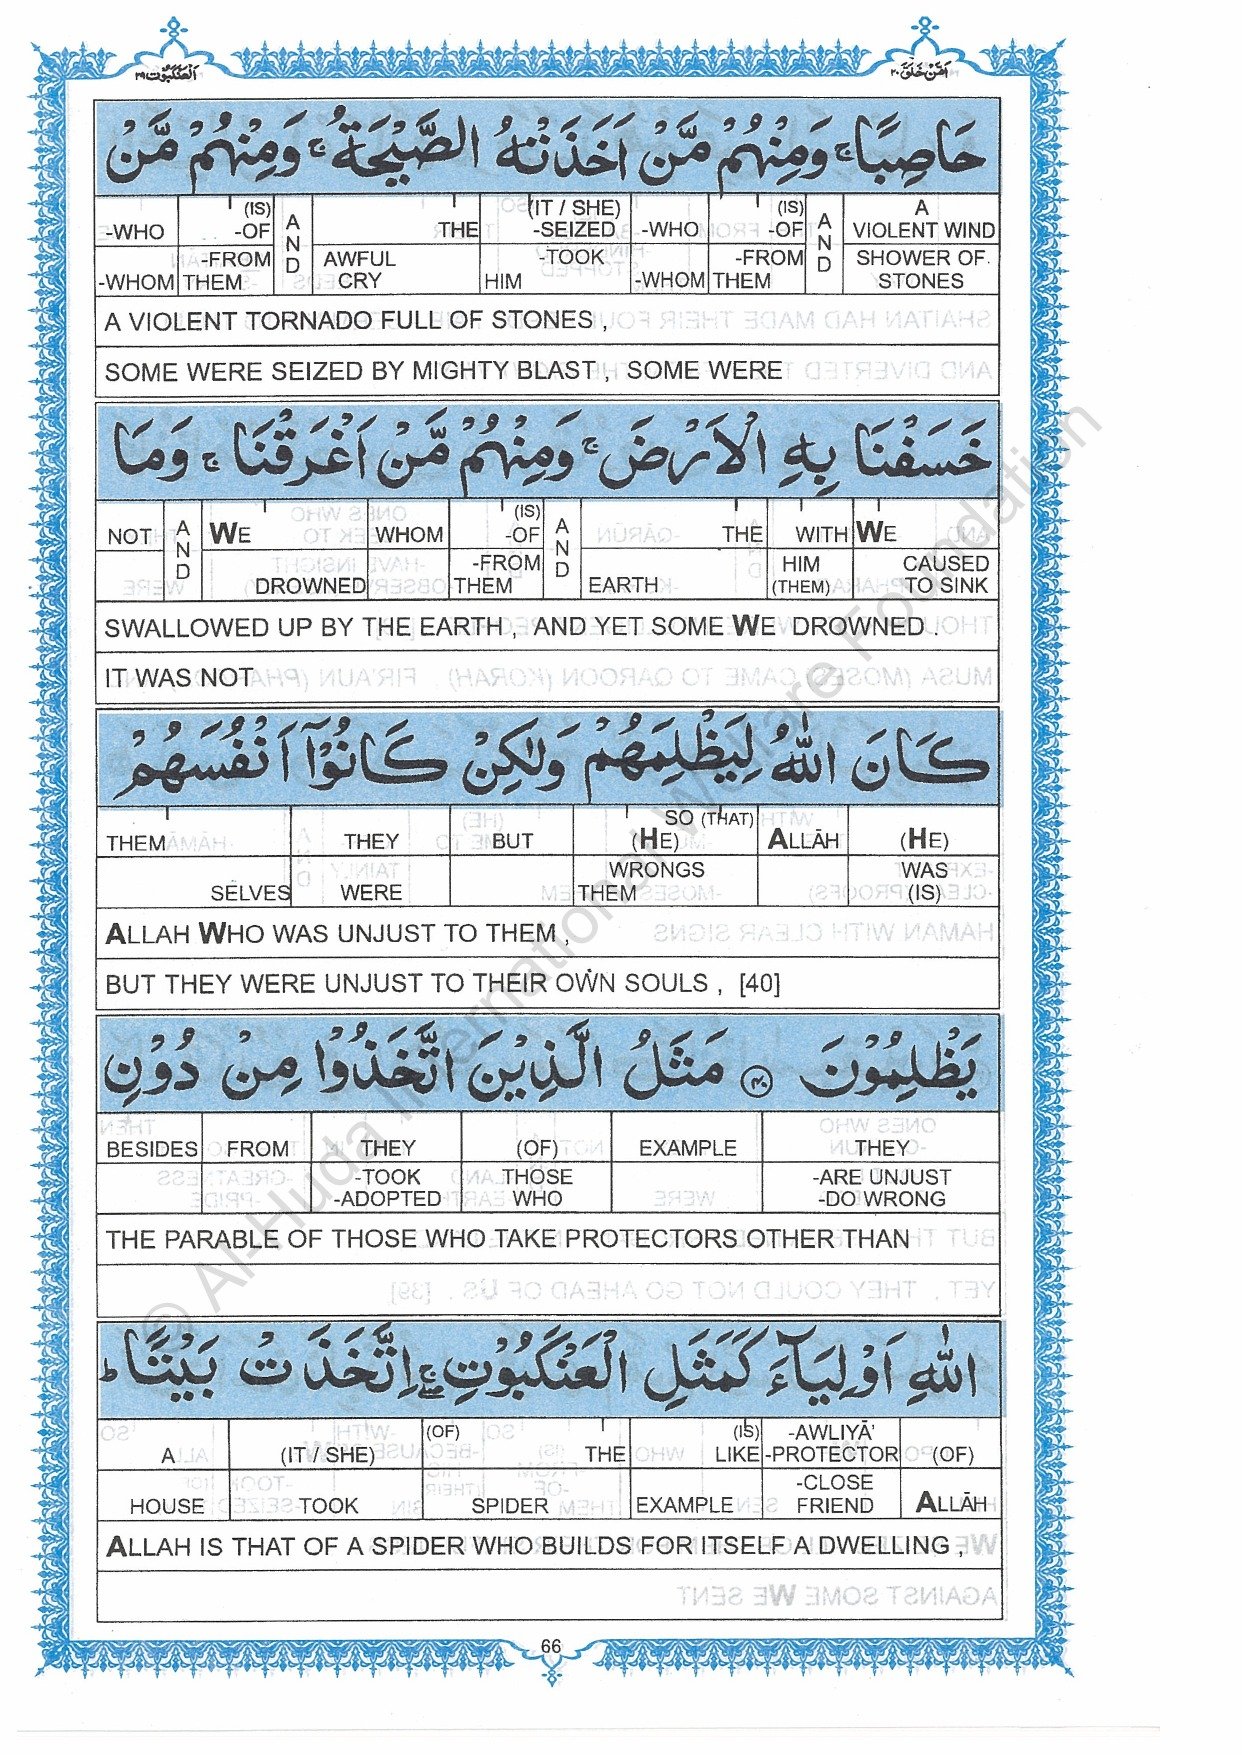 العنكبوت ٢٩ امن خلق ٢٠
حَاصِبًا ۚ وَمِنْهُمْ مَّنْ اَخَذَتْهُ الصَّيْحَةُ ۚ وَمِنْهُمْ مَّنْ
-WHO (IS) -OF AND THE (IT / SHE) -SEIZED -WHO (IS) -OF AND A VIOLENT WIND
-WHOM -FROM THEM AWFUL CRY -TOOK HIM -WHOM -FROM THEM SHOWER OF STONES
A VIOLENT TORNADO FULL OF STONES ,
SOME WERE SEIZED BY MIGHTY BLAST , SOME WERE
خَسَفْنَا بِهِ الْاَرْضَ ۚ وَمِنْهُمْ مَّنْ اَغْرَقْنَا ۚ وَمَا
NOT AND WE WHOM (IS) -OF AND THE WITH WE
DROWNED -FROM THEM EARTH HIM (THEM) CAUSED TO SINK
SWALLOWED UP BY THE EARTH , AND YET SOME WE DROWNED .
IT WAS NOT
كَانَ اللّٰهُ لِيَظْلِمَهُمْ وَلٰكِنْ كَانُوْٓا اَنْفُسَهُمْ
THEM THEY BUT SO (THAT) (HE) ALLĀH (HE)
SELVES WERE WRONGS THEM WAS (IS)
ALLAH WHO WAS UNJUST TO THEM ,
BUT THEY WERE UNJUST TO THEIR OWN SOULS , [40]
يَظْلِمُوْنَ ۝٤٠ مَثَلُ الَّذِيْنَ اتَّخَذُوْا مِنْ دُوْنِ
BESIDES FROM THEY (OF) EXAMPLE THEY
-TOOK -ADOPTED THOSE WHO -ARE UNJUST -DO WRONG
THE PARABLE OF THOSE WHO TAKE PROTECTORS OTHER THAN
اللّٰهِ اَوْلِيَآءَ كَمَثَلِ الْعَنْكَبُوْتِ ۖۚ اِتَّخَذَتْ بَيْتًا ؕ
A (IT / SHE) (OF) THE (IS) LIKE -AWLIYĀ' -PROTECTOR (OF)
HOUSE TOOK SPIDER EXAMPLE -CLOSE FRIEND ALLĀH
ALLAH IS THAT OF A SPIDER WHO BUILDS FOR ITSELF A DWELLING ,
66
© Al-Huda International Welfare Foundation